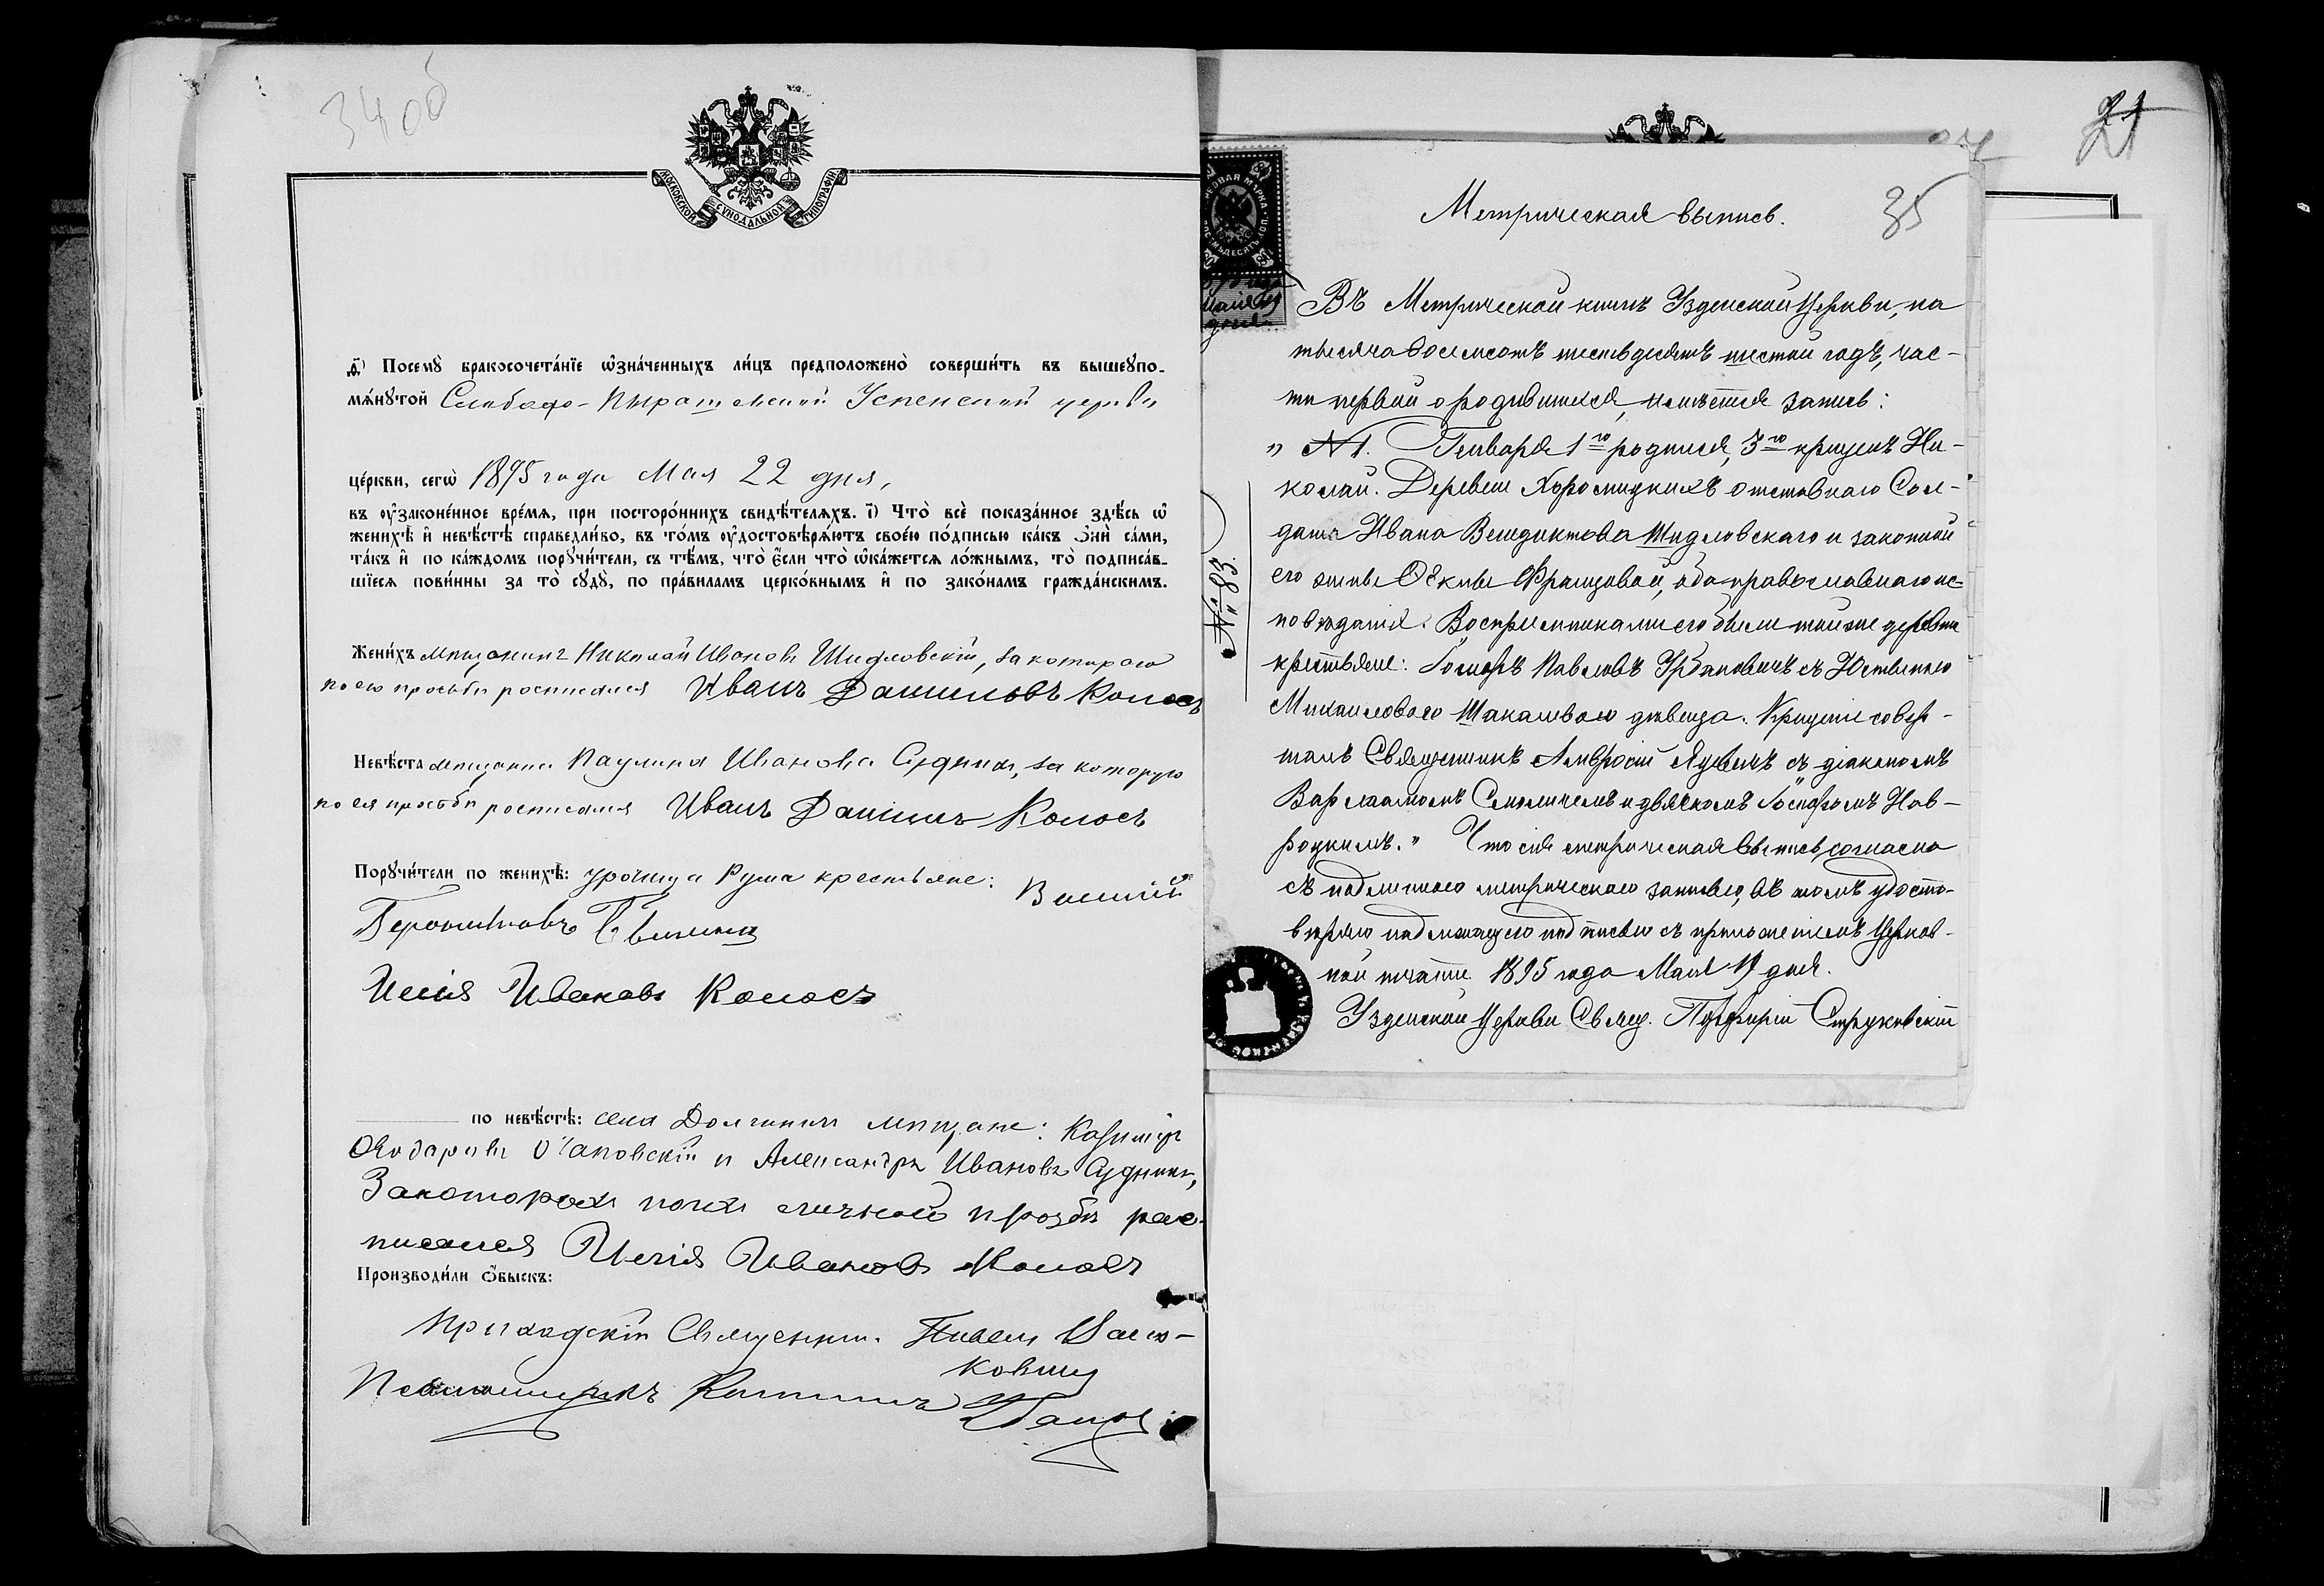 34об
МОСКОВСКОЙ СѴНОДАЛЬНОЙ ТИПОГРАФІИ
ѳ҃) Посемꙋ̀ бракосочета́нїе ѡ҆зна́ченныхъ ли́цъ предположено̀ соверши́ть въ вышеꙋпо-
мѧ́нꙋтой Слободо-Пырашевской Успенской церкви
це́ркви, сегѡ̀ 1895 года Мая 22 дня,
въ ᲂу҆законе́нное вре́мѧ, при посторо́ннихъ свидѣ́телѧхъ. і҃) Что̀ всѐ показа́нное здѣ́сь ѡ҆
женихѣ̀ и҆ невѣ́стѣ справедли́во, въ то́мъ ᲂу҆достовѣрѧ́ютъ свое́ю по́дписью ка́къ Ѻ҆нѝ са́ми,
та́къ и҆ по ка́ждомъ порꙋчи́тели, съ тѣ́мъ, что̀ є҆́сли что̀ ѡ҆ка́жетсѧ ло́жнымъ, то̀ подписа́в-
шїесѧ пови́нны за то̀ сꙋдꙋ̀, по пра́виламъ церко́внымъ и҆ по зако́намъ гражда́нскимъ.
Жени́хъ мѣщанинъ Николай Ивановъ Шидловскій, за котораго
по его просьбѣ росписался Иванъ Данииловъ Колосъ
Невѣ́ста мѣщанка Паулина Иванова Судникъ, за которую
по ея просьбѣ росписался Иванъ Даниилъ Колосъ
Порꙋчи́тели по женихѣ̀: урочища Рума крестьяне: Василій
Героимовъ
Илія Ивановъ Колосъ
по невѣ́стѣ: села Долгиничъ мѣщане: Казиміръ
Ѳеодоровъ и Александръ Ивановъ Судникъ,
За которыхъ по ихъ личной прозбѣ рос-
писался Илія Ивановъ Колосъ
Производи́ли ѻ҆́быскъ:
Приходскій Священникъ Павелъ
ковичъ
Псаломщикъ
21
35
Метрическая выпись.
МАРКА
Въ Метрической книгѣ Узденской Церкви, на
тысяча восемсотъ шестьдесятъ шестой годъ, час-
ти первой о родившихся, имѣется запись:
„ №1. Генваря 1го родился, 3го крещенъ Ни-
колай. Деревни Хоромицкихъ отставнаго Сол-
дата Ивана Венедиктова Шидловскаго и законной
его жены Ѳеклы Францовой, оба православнаго ис-
повѣданія. Воспріемниками его были той же деревни
крестьяне: Іосифъ Павловъ Урбановичъ съ Юстиною
Михаиловою Шакалевою дѣвица. Крещеніе совер-
шалъ Священникъ Амвросій Яцевичъ съ діакономъ
Варлаамомъ Смоличемъ и дьячкомъ Іосифомъ Нов-
роцкимъ.“ Что сія метрическая выпись, согласна
съ подлинною метрическою записью, въ томъ удосто-
вѣряю надлежащею подписью съ приложеніемъ Церков-
ной печати. 1895 года Мая 19 дня.
Узденской Церкви Свящ. Порфирій Струковскій
№ 83.